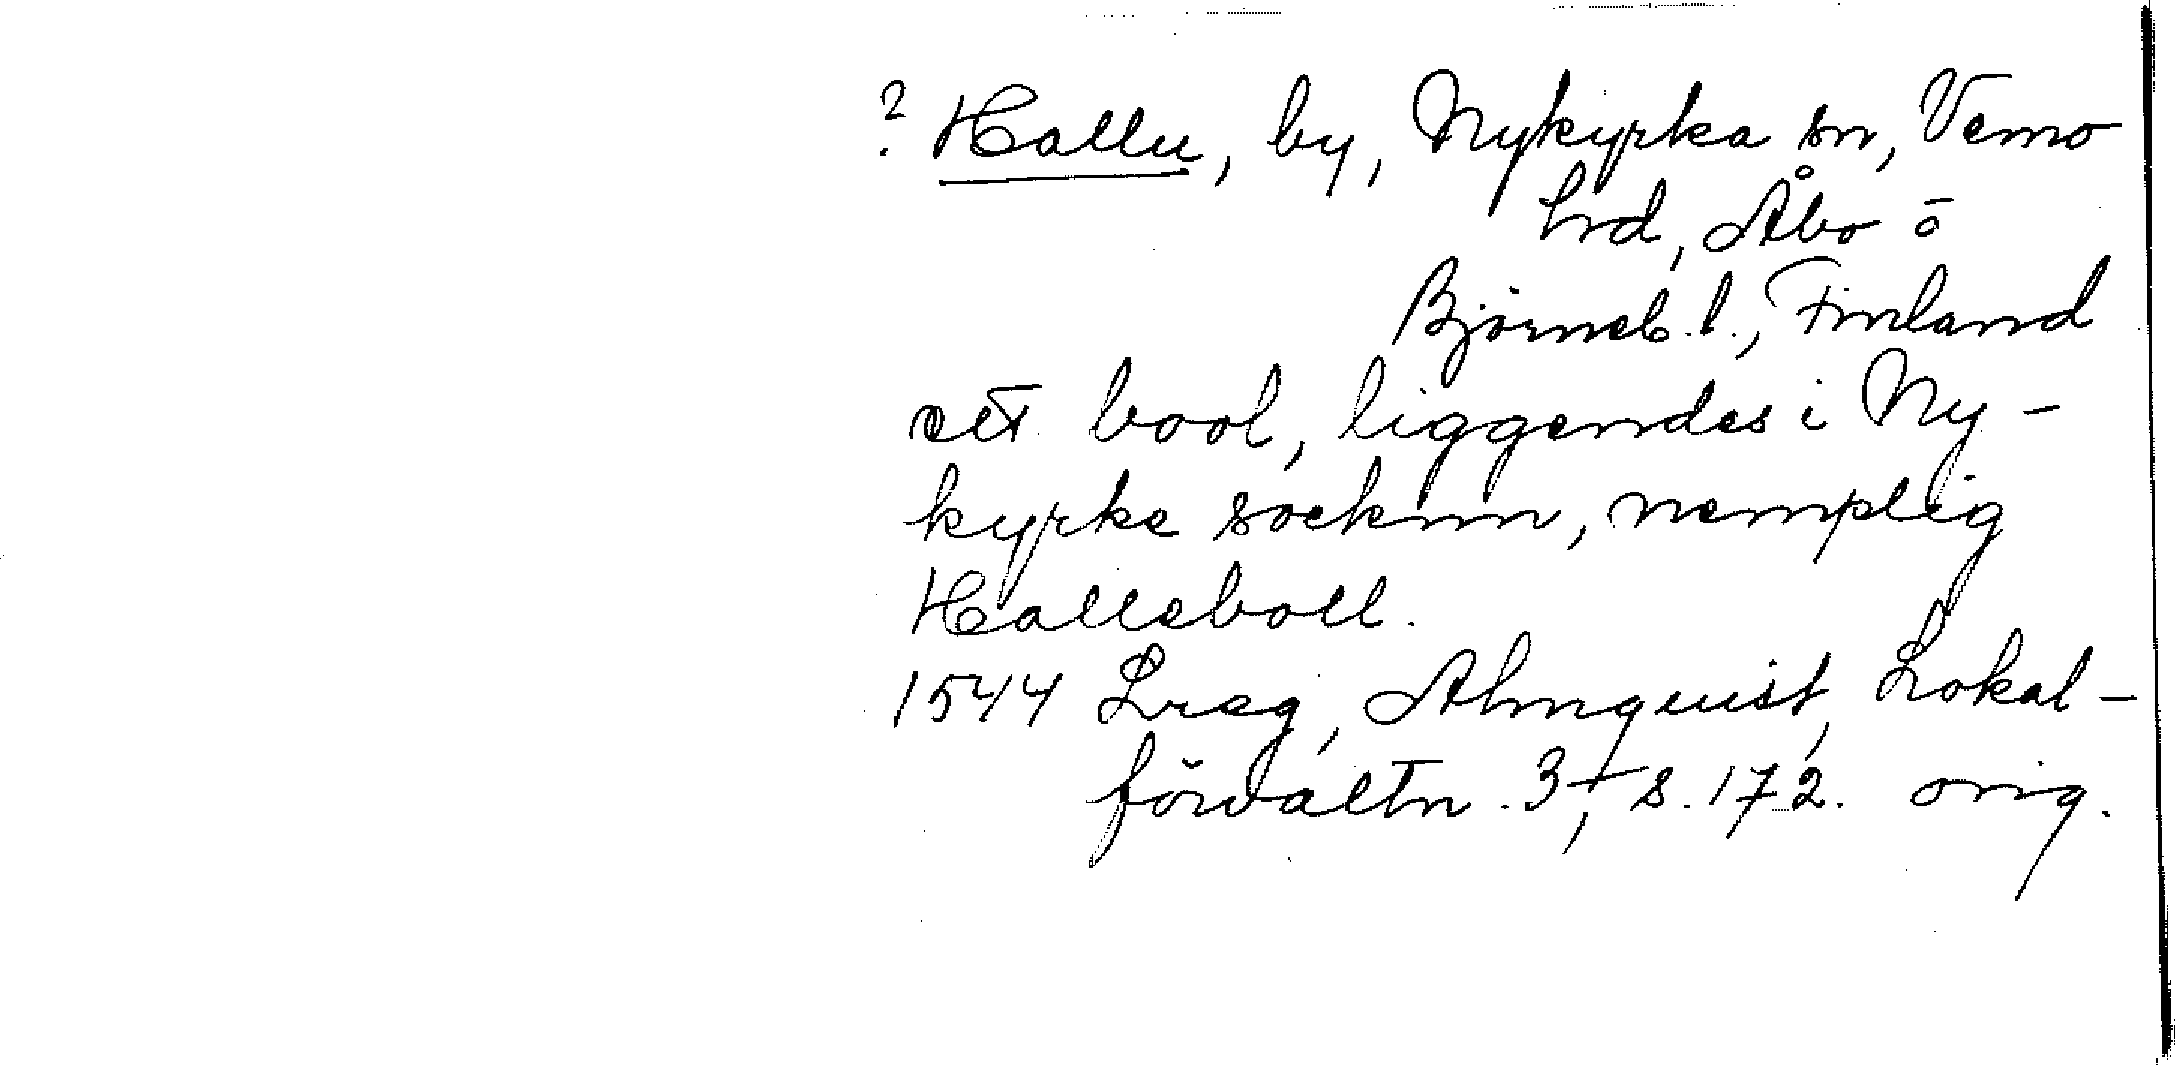 ? Hallu, by, Nykyrka sn, Vemo
hrd, Åbo o
Björneb. l., Finland
ett bool, liggendes i Ny-
kyrke socknn, nemplig
Halleboll.
1544 Lreg, Almquist, Lokal-
förvaltn. 3, s. 172. orig.